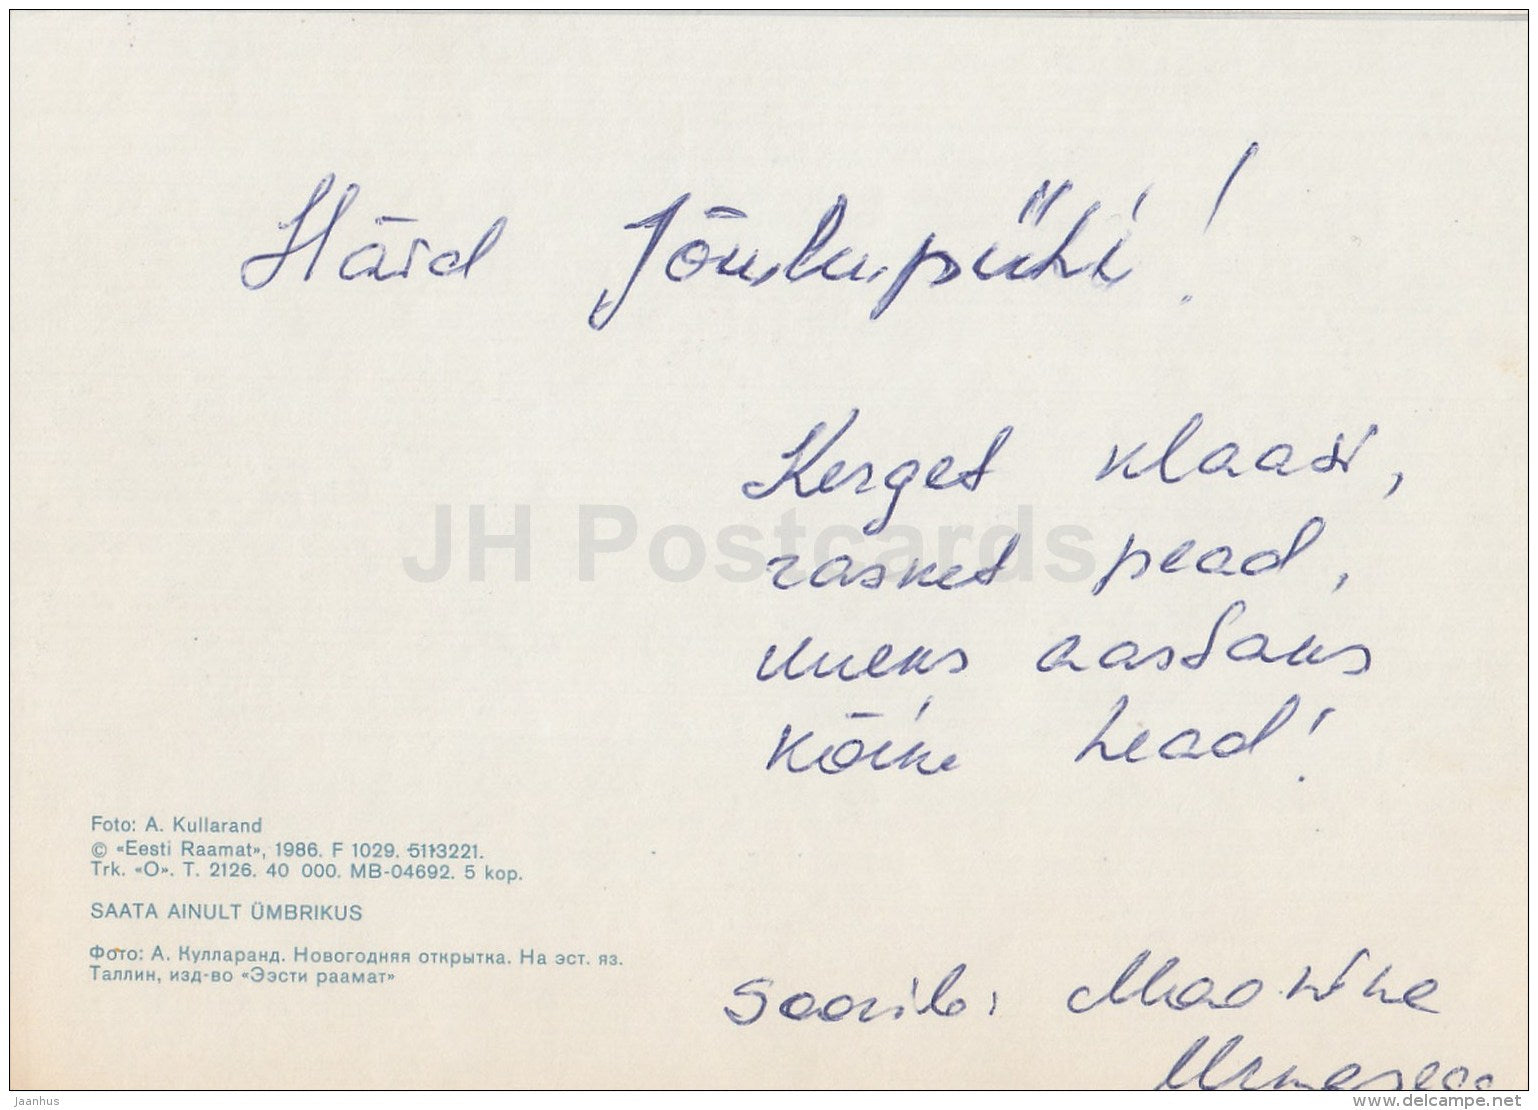 Häid Jõulupühi!
Kerget klaasi,
rasket pead,
uueks aastaks
kõike head!
Foto: A. Kullarand
© «Eesti Raamat», 1986. F 1029. 5113221.
Trk. «O». T. 2126. 40 000. MB-04692. 5 kop.
SAATA AINULT ÜMBRIKUS
Фото: А. Кулларанд. Новогодняя открытка. На эст. яз.
Таллин, изд-во «Ээсти раамат»
soovib:
JH Postcards
Jaanhus
delcampe.net